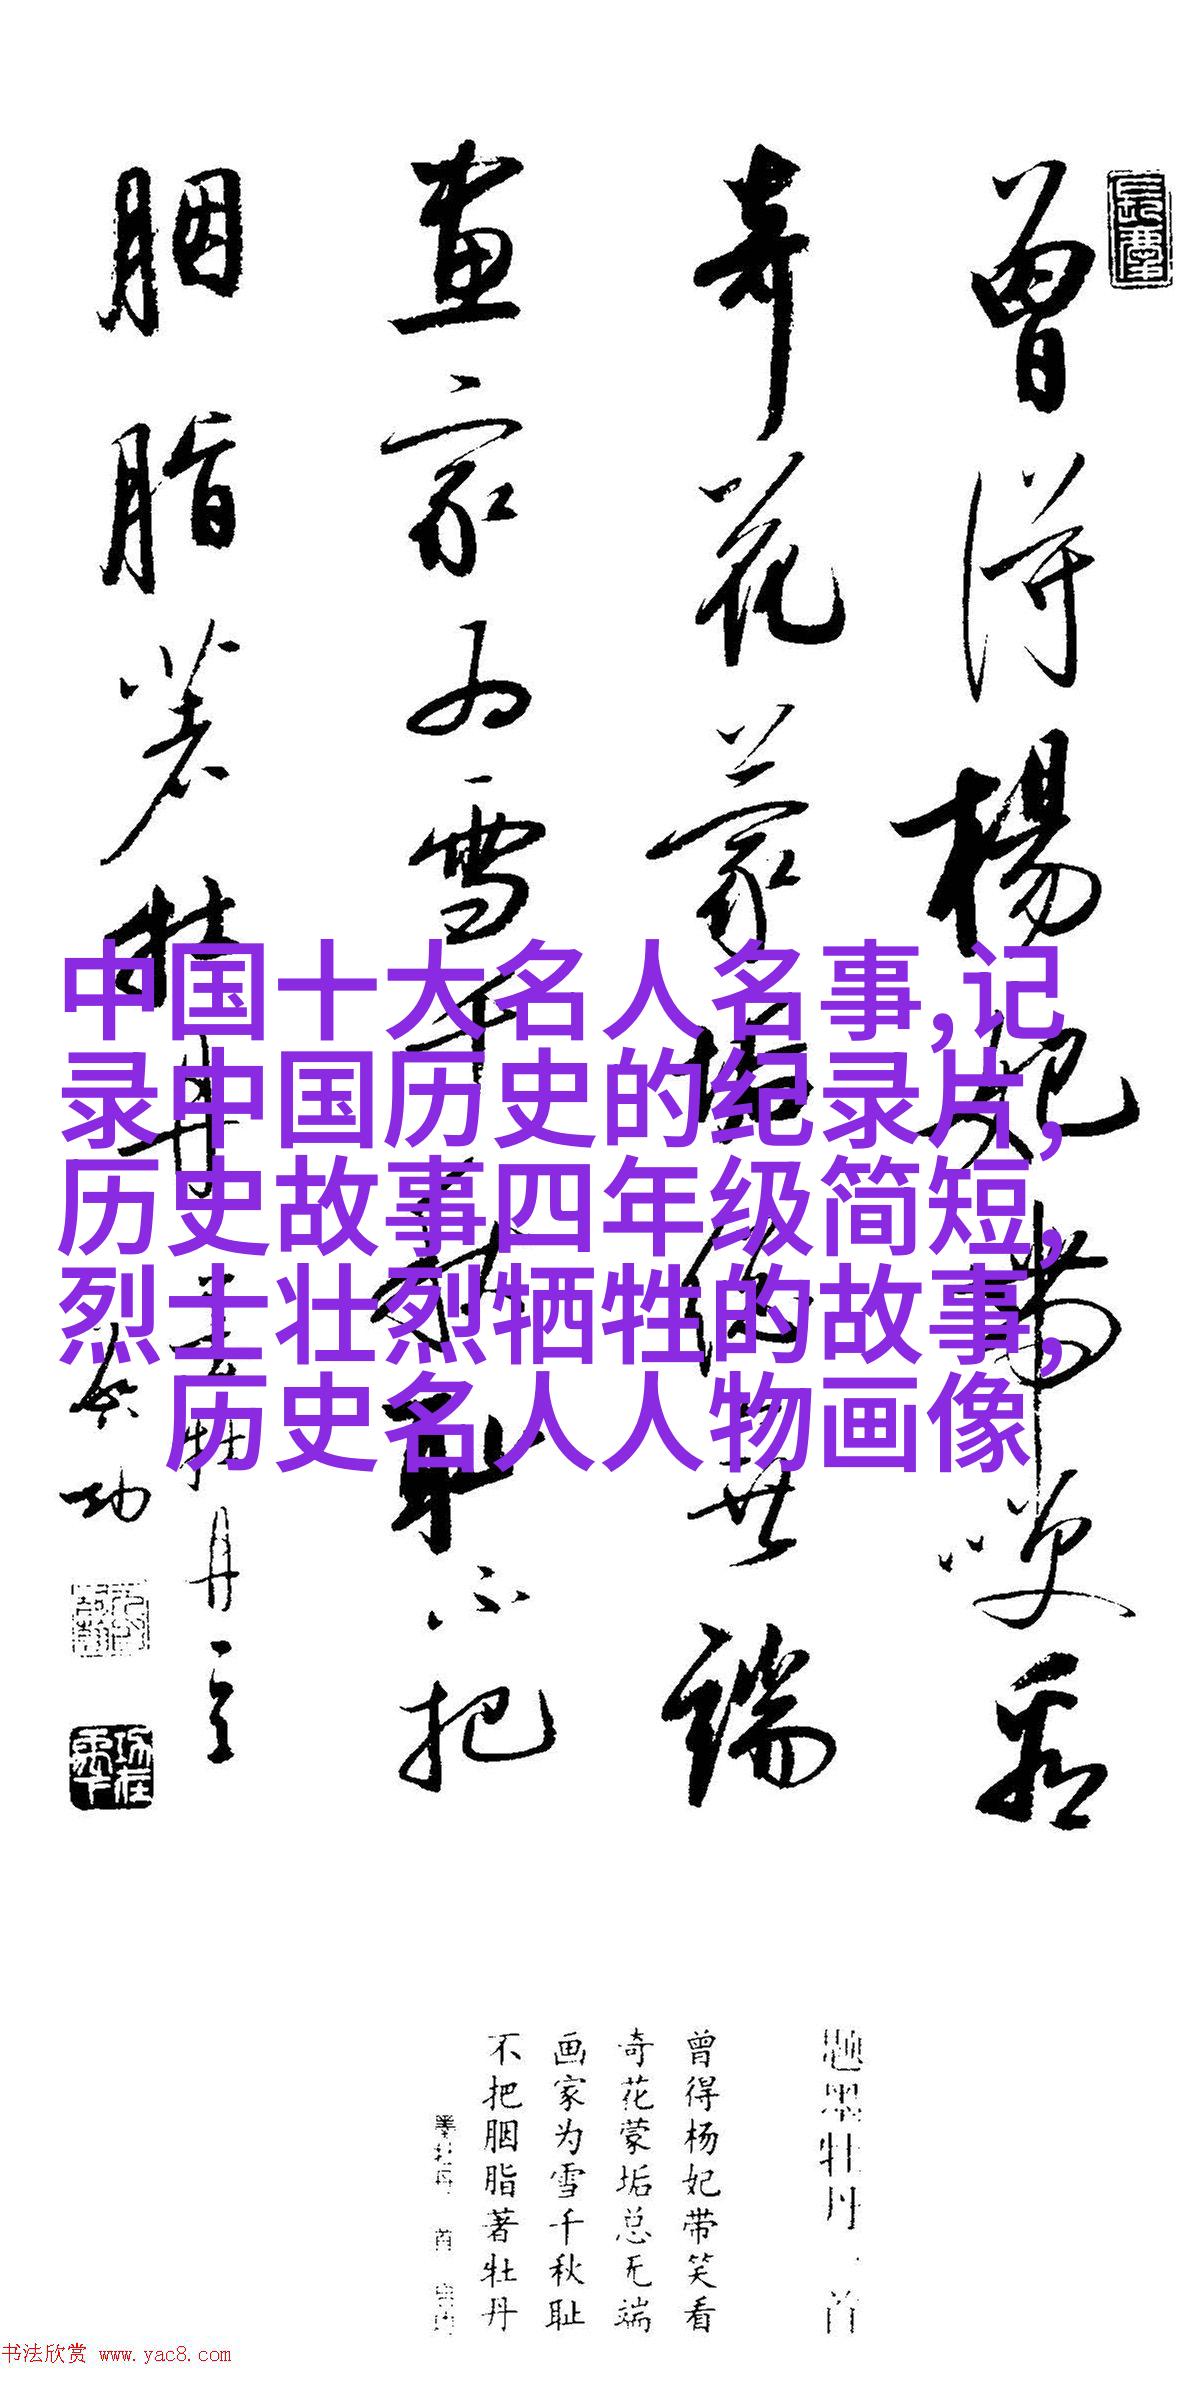 曾得楊妃帶笑看
奇花蒙垢總無端
畫家为雪千秋恥不把
胭脂著牡丹
墨牡丹之一
启功
中国十大名人名事,记
录中国历史的纪录片,
历史故事四年级简短,
烈士壮烈牺牲的故事,
历史名人人物画像
题墨牡丹一首
曾得杨妃带笑看
奇花蒙垢总无端
画家为雪千秋耻
不把胭脂著牡丹
书法欣赏 www.yac8.com